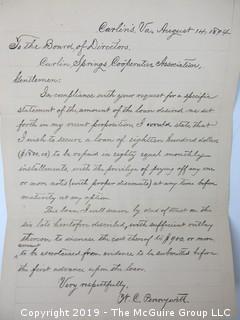 Carlin's, Va, August 14, 1894
To the Board of Directors,
Carlin Springs Cooperative Association,
Gentlemen:
In compliance with your request for a specific
statement of the amount of the loan desired as set
forth in my recent proposition, I would state that
I wish to secure a loan of eighteen hundred dollars
($1800.00) to be repaid in eighty equal monthly
installments, with the privilege of paying off any one
or more notes (with proper discounts) at any time before
maturity at any option
This loan I will secure by deed of trust on the
six lots heretofore described, with sufficient outlay
thereon to increase the cost thereof to $900 or more
to be ascertained from evidence to be submitted before
the first advance upon the loan.
Very respectfully,
W. C. Pennywitt
Copyright 2019 - The McGuire Group LLC